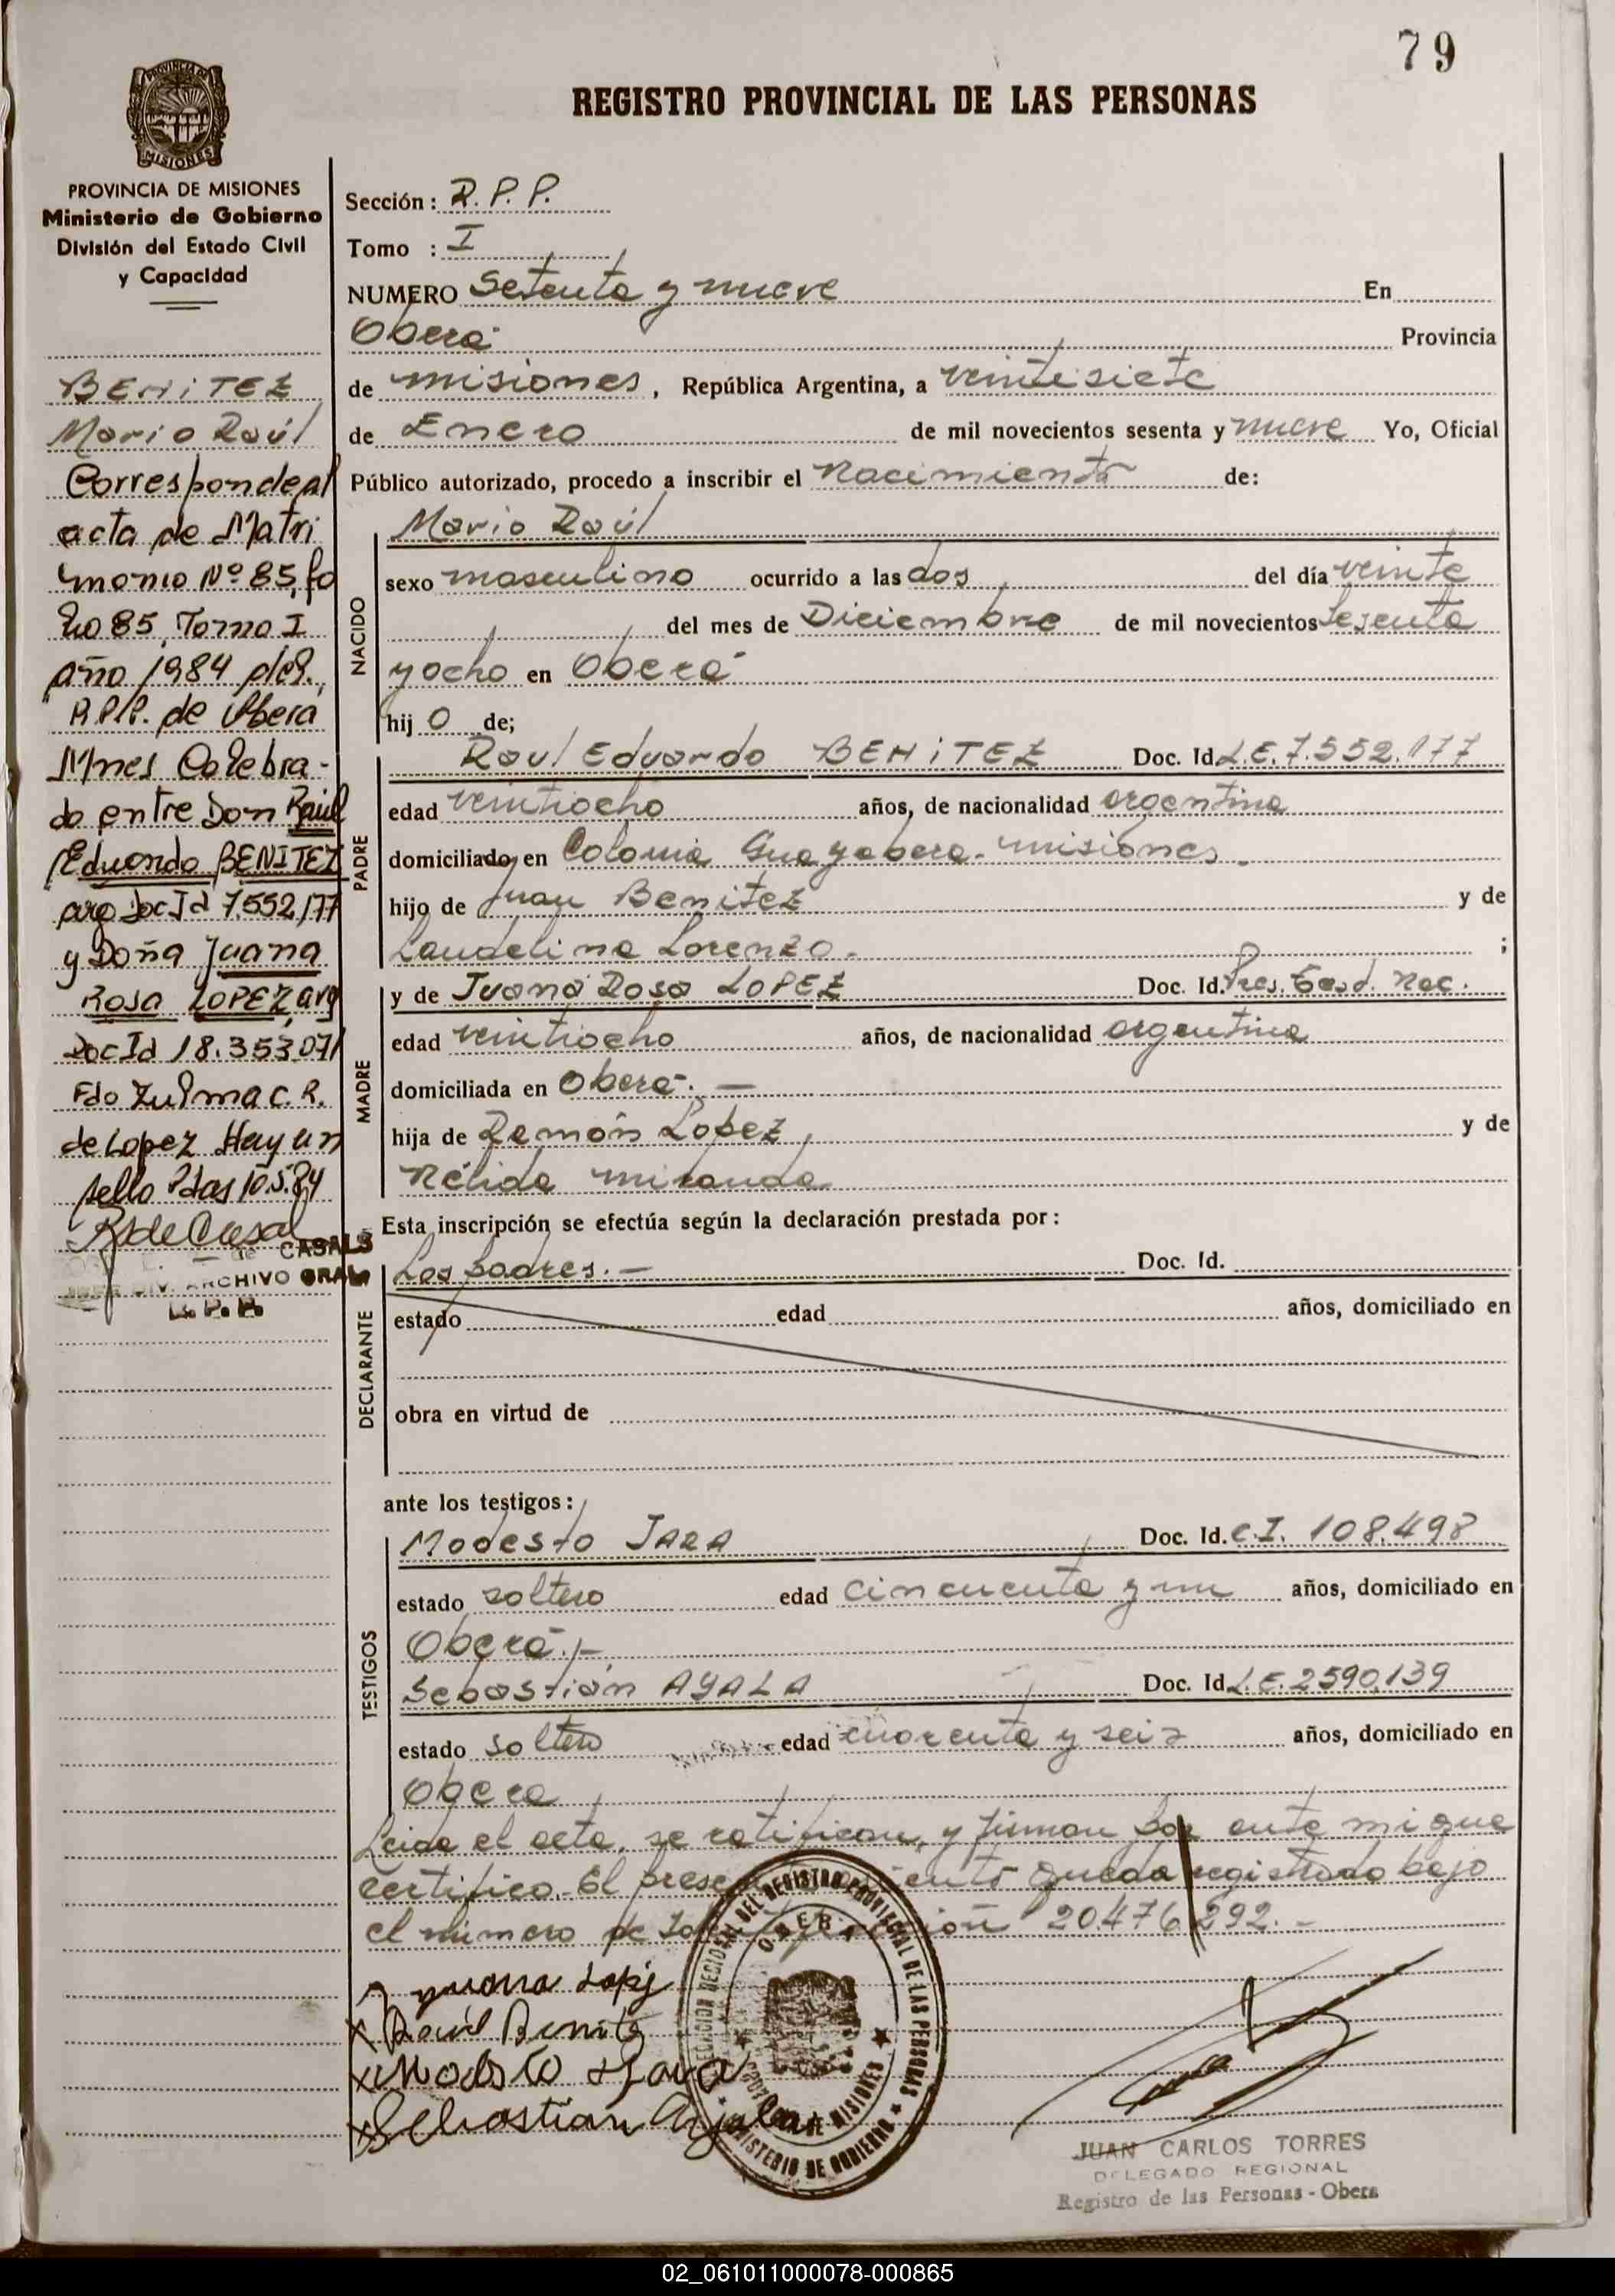 79
REGISTRO PROVINCIAL DE LAS PERSONAS
PROVINCIA DE
MISIONES
PROVINCIA DE MISIONES
Ministerio de Gobierno
División del Estado Civil
y Capacidad
BENITEZ
Mario Raúl
Corresponde al
acta de Matri
monio Nº 85, fo
lio 85, Tomo I
año 1984 del
R.P.P. de Obera
Mnes Celebra-
do entre Don Raúl
Eduardo BENITEZ
arg Doc Id 7.552.177
y Doña Juana
Rosa LOPEZ, arg
Doc Id 18.353.071
Fdo Zulma C. R.
de Lopez Hay un
sello Pdas 10.5.84
R de Casals
de CASALS
DIV. ARCHIVO GRAL
R. P. P.
Sección: R. P. P.
Tomo : I
NUMERO Setenta y nueve En
Oberá Provincia
de misiones, República Argentina, a veintisiete
de Enero de mil novecientos sesenta y nueve Yo, Oficial
Público autorizado, procedo a inscribir el Nacimiento de:
NACIDO
Mario Raúl
sexo masculino ocurrido a las dos del día veinte
del mes de Diciembre de mil novecientos sesenta
y ocho en Oberá
hij o de;
PADRE
Raul Eduardo BENITEZ Doc. Id. L.E. 7.552.177
edad veintiocho años, de nacionalidad argentina
domiciliado en Colonia Guayabera - misiones -
hijo de Juan Benitez y de
Laudelina Lorenzo. ;
MADRE
y de Juana Rosa LOPEZ Doc. Id. Pres.
edad veintiocho años, de nacionalidad argentina
domiciliada en Oberá. —
hija de Ramón Lopez, y de
Nélida miranda
Esta inscripción se efectúa según la declaración prestada por:
DECLARANTE
Los padres. — Doc. Id.
estado edad años, domiciliado en
obra en virtud de
ante los testigos:
TESTIGOS
Modesto JARA Doc. Id. C.I. 108.498
estado soltero edad cincuenta y un años, domiciliado en
Oberá. -
Sebastián AYALA Doc. Id. L.E. 2590.139
estado soltero edad cuarenta y seis años, domiciliado en
Obera
Leida el acta, se ratifican, y firman por ante mi que
certifico. El queda registrado bajo
el número de 20.476.292. -
Juana Lopez
x Raúl Benitez
x Modesto Jara
x Sebastian Ayala
DELEGACION REGIONAL DEL REGISTRO PROVINCIAL DE LAS PERSONAS
OBERA
MISIONES
MINISTERIO DE GOBIERNO
JUAN CARLOS TORRES
DELEGADO REGIONAL
Registro de las Personas - Obera
02_061011000078-000865